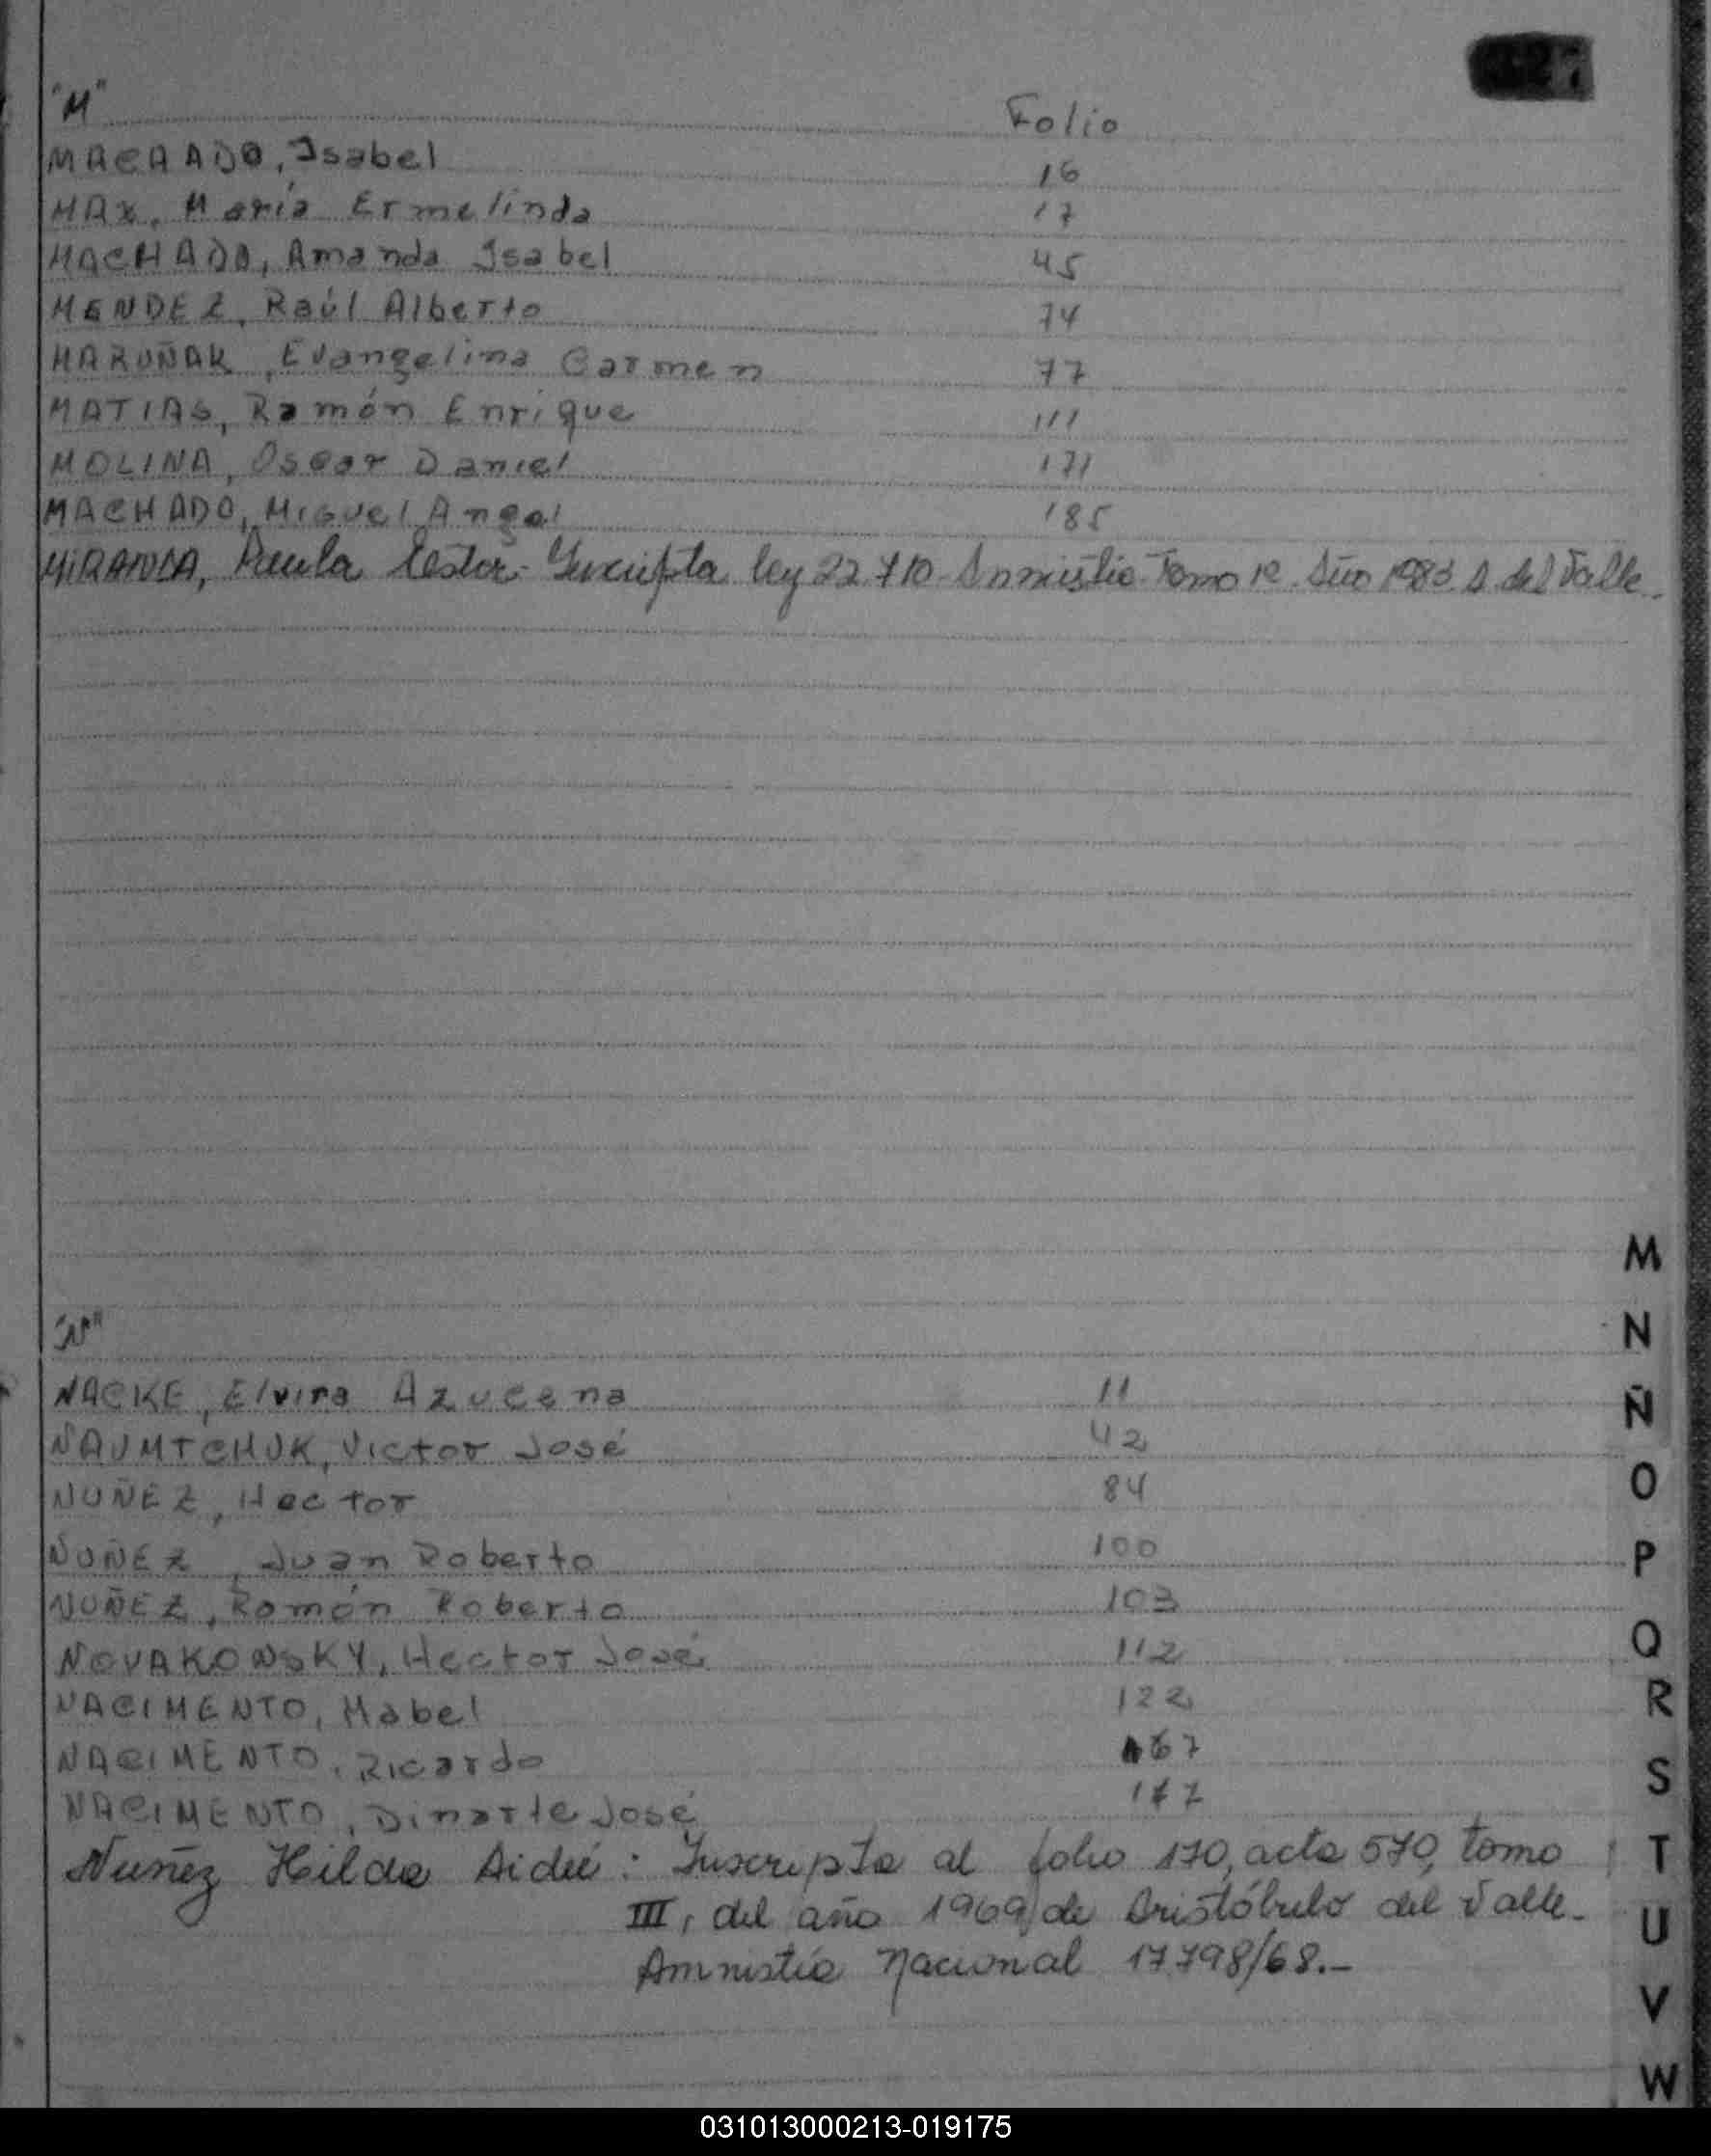 "M" Folio
MACHADO, Isabel 16
MAX, María Ermelinda 17
MACHADO, Amanda Isabel 45
MENDEZ, Raúl Alberto 74
MARUÑAK, Evangelina Carmen 77
MATIAS, Ramón Enrique 111
MOLINA, Oscar Daniel 171
MACHADO, Miguel Angel 185
MIRANDA, Paula Ester Inscripta ley 22.710 Amnistia Tomo 1º Año 1983 A. del Valle.
"N"
NACKE, Elvira Azucena 11
NAUMTCHUK, Victor José 42
NUÑEZ, Hector 84
NUÑEZ, Juan Roberto 100
NUÑEZ, Ramón Roberto 103
NOVAKOWSKY, Hector José 112
NACIMENTO, Mabel 122
NACIMENTO, Ricardo 167
NACIMENTO, Dinarte José 177
Nuñez Hilda Aideé: Inscripta al folio 170, acta 570, tomo
III, del año 1969 de Aristóbulo del Valle.
Amnistía Nacional 17.798/68.-
M
N
Ñ
O
P
Q
R
S
T
U
V
W
031013000213-019175